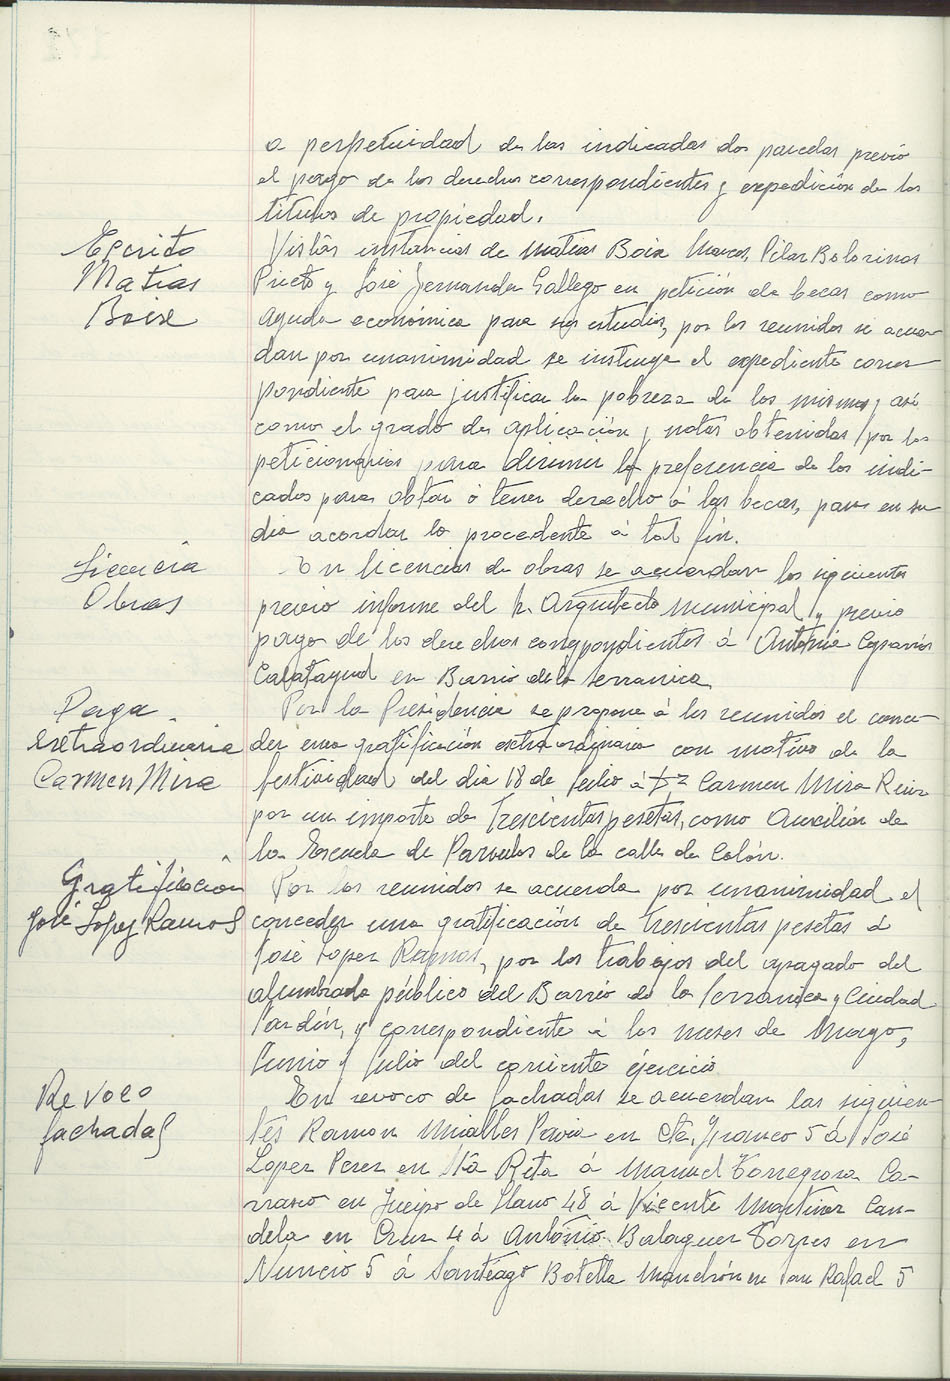 a perpetuidad de las indicadas dos parcelas previo
el pago de los derechos correspondientes y expedición de los
titulos de propiedad.
Escrito
Matias
Boix
Vistas instancias de Matias Boix Marcos, Pilar
Prieto y José Fernandez Gallego en petición de becas como
ayuda económica para sus estudios, por los reunidos se acuer-
dan por unanimidad se instruya el expediente corres-
pondiente para justificar la pobreza de los mismos y asi
como el grado de aplicación y notas obtenidas por los
peticionarios para dirimir la preferencia de los indi-
cados para obtar ó tener derecho á las becas, para en su
dia acordar lo procedente á tal fin.
Licencia
Obras
En licencias de obras se acuerdan las siguientes
previo informe del Sr. Arquitecto Municipal y previo
pago de los derechos correspondientes á Antonia
Calatayud en Barrio de la Serranica.
Paga
Extraordinaria
Carmen Mira
Por la Presidencia se propone á los reunidos el conce-
der una gratificación extraordinaria con motivo de la
festividad del dia 18 de Julio á Dª Carmen Mira
por un importe de Trescientas pesetas, como Auxiliar de
la Escuela de Parvulos de la calle de Colón.
Gratificación
José Lopez Ramos
Por los reunidos se acuerda por unanimidad el
conceder una gratificación de trescientas pesetas á
José Lopez Ramos, por los trabajos del apagado del
alumbrado público del Barrio de la Serranica y Ciudad
Jardín, y correspondiente á los meses de Mayo,
Junio y Julio del corriente éjercició
Revoco
fachadas
En revoco de fachadas se acuerdan las siguien-
tes Ramon Miralles Pavia en Cta. Franco 5 á José
Lopez Perez en Stª Rita á Manuel Torregrosa Ca-
rrasco en Queipo de Llano 48 á Vicente Martinez Can-
dela en Cruz 4 á Antonio Balaguer Torres en
Nuncio 5 á Santiago Botella Manchón en San Rafael 5